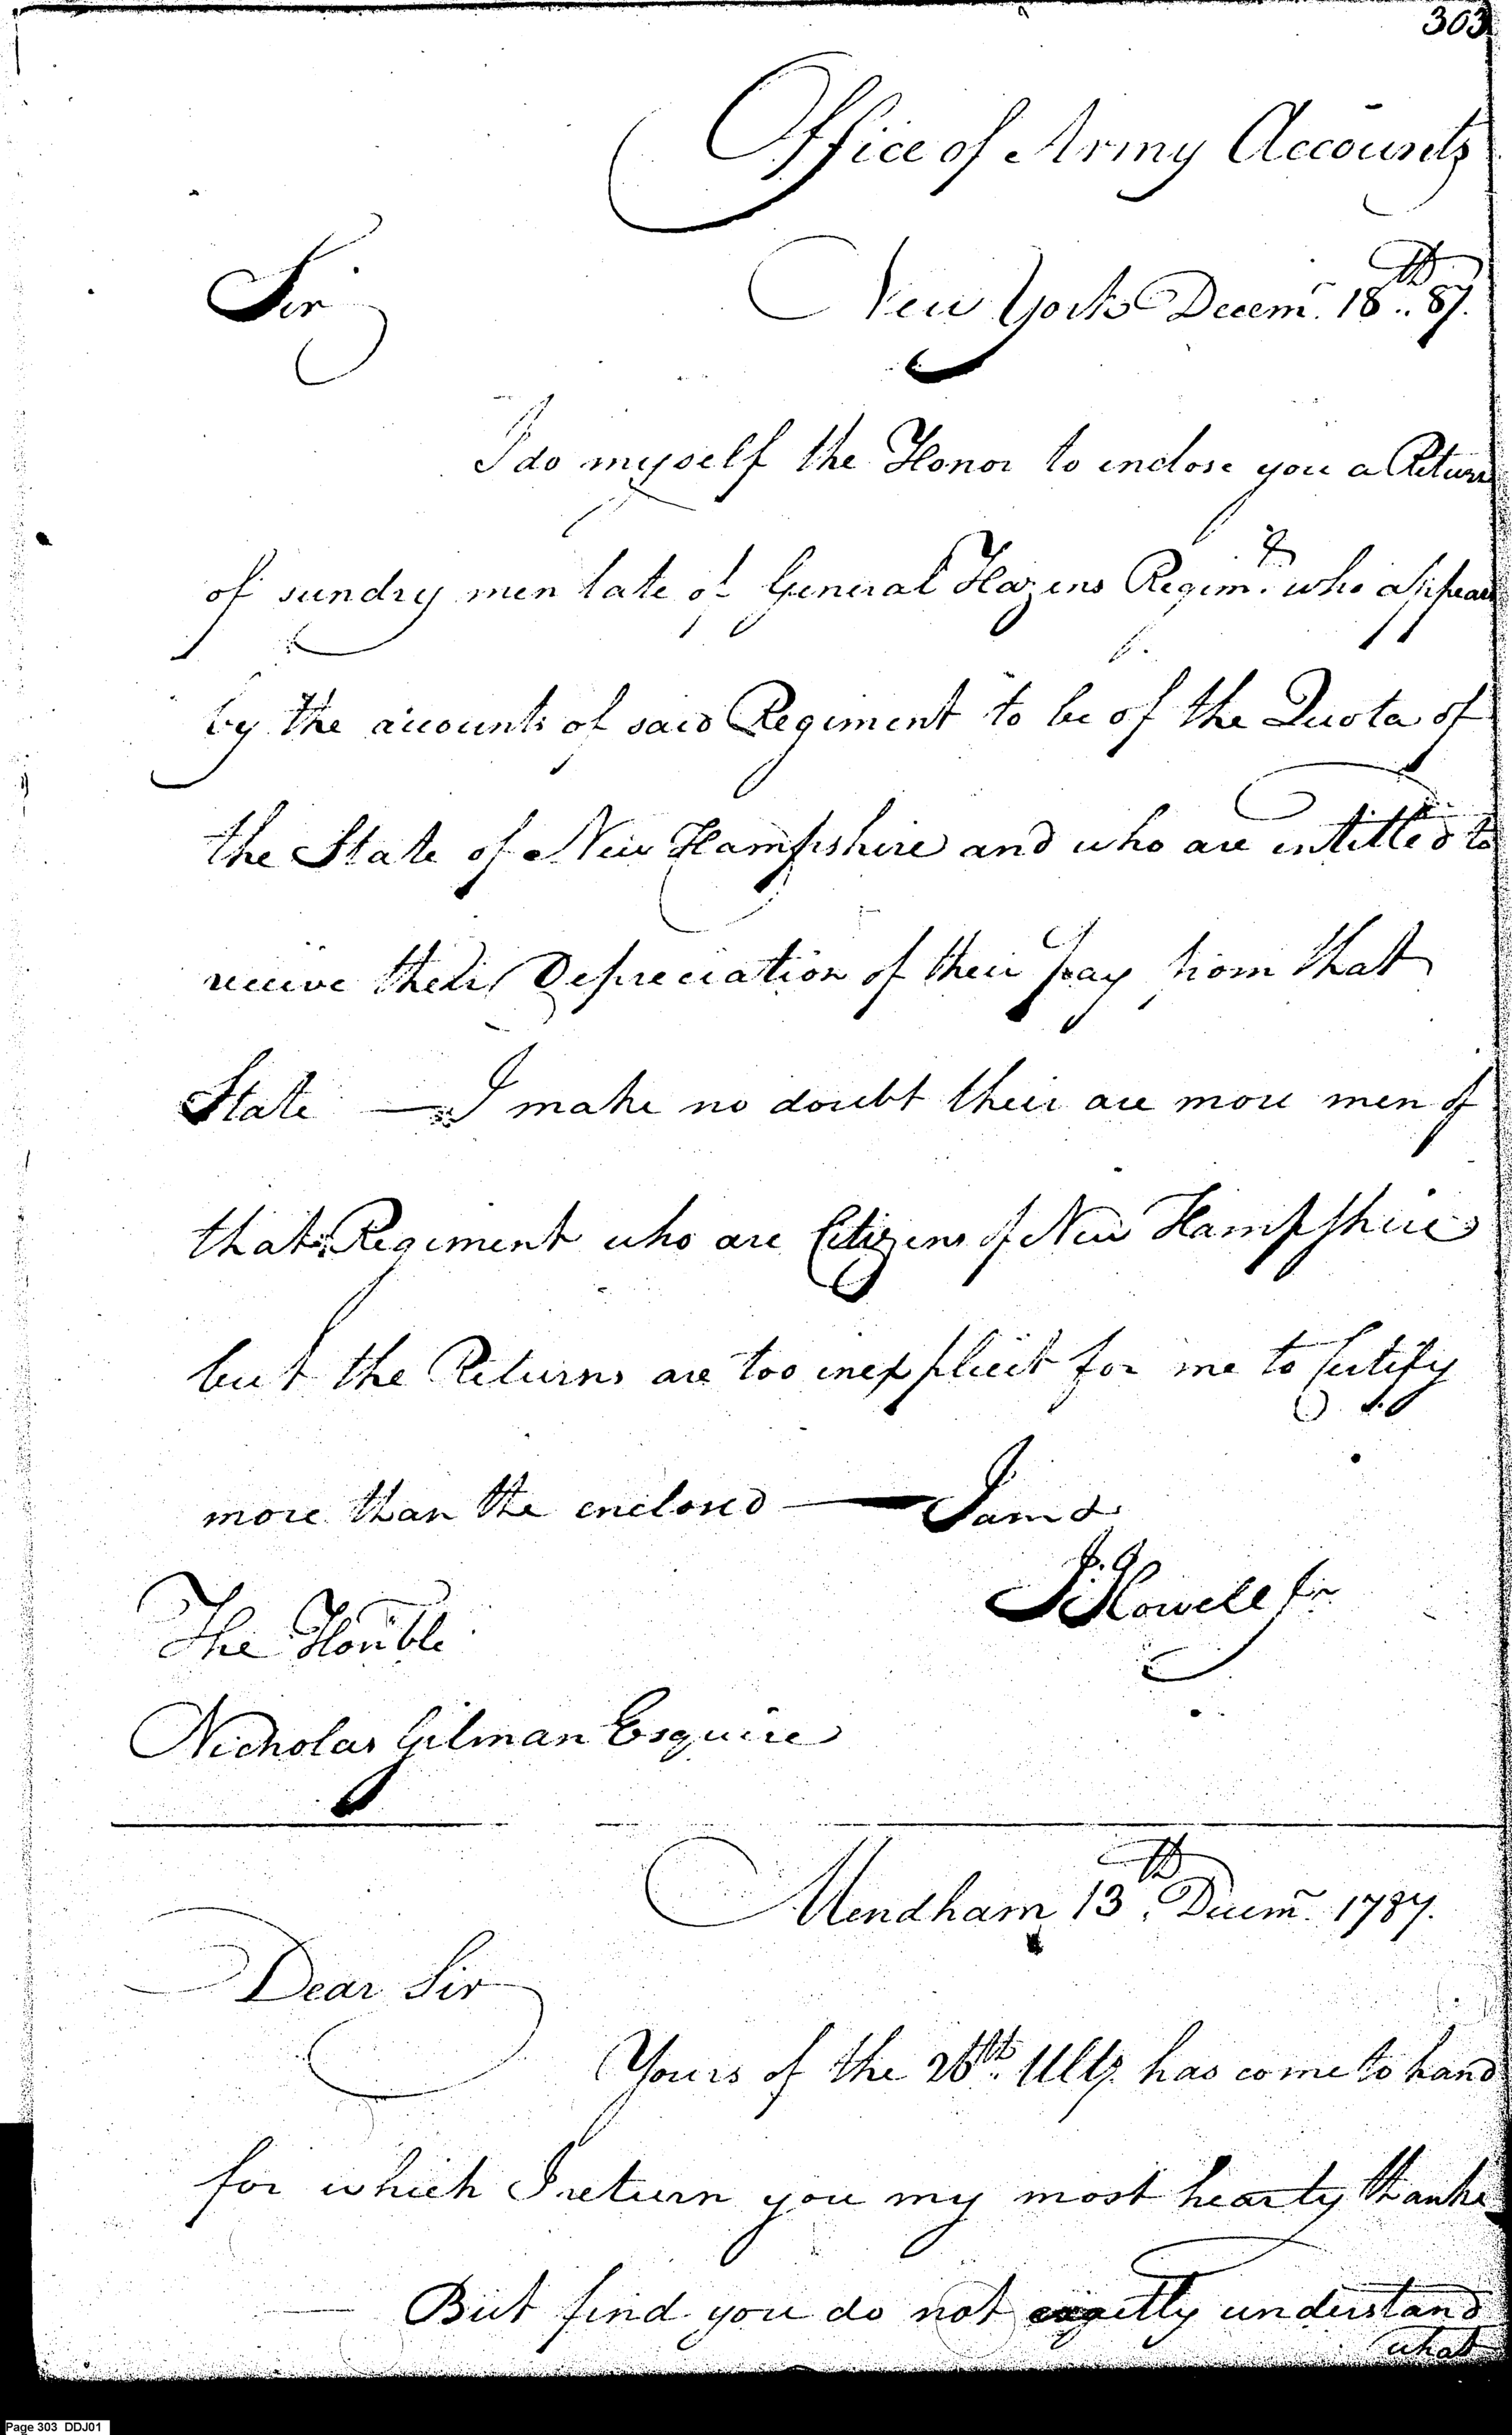 303
Office of Army Accounts
Sir
New York Decemr. 18th. 87.
I do myself the Honor to inclose you a Return
of sundry men late of General Hazens Regimt. who appears
by the accounts of said Regiment to be of the Quota of
the State of New Hampshire and who are intittled to
receive their Depreciation of their pay from that
State — I make no doubt their are more men of
that Regiment who are Citizens of New Hampshire
but the Returns are too inexplicit for me to Certify
more than the enclosed — I am &
J. Howell Jr.
The Honble
Nicholas Gilman Esquire
Mendham 13th. Decemr. 1787.
Dear Sir
Yours of the 26th. Ulto. has come to hand
for which I return you my most hearty thanks
— But find you do not exactly understand
what
Page 303 DDJ01